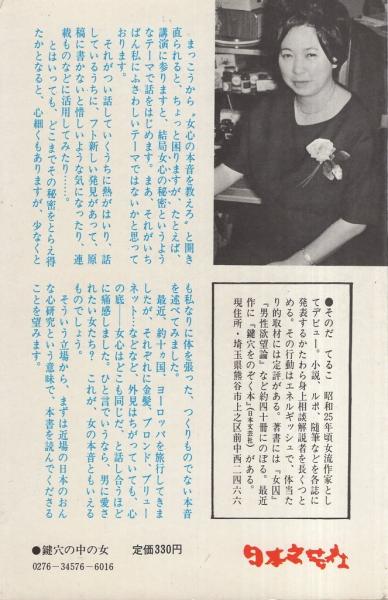 まっこうから〝女心の本音を教えろ〟と開き
直られると、ちょっと困りますが、たとえば、
講演に参りますと、結局女心の秘密というよう
なテーマで話をはじめます。まあ、それがいち
ばん私にふさわしいテーマではないかと思って
おります。
それがつい話していくうちに熱がはいり、話
しているうちに、フト新しい発見があって、原
稿に書かないと惜しいような気になったり、連
載ものなどに活用してみたり……。
とはいっても、どこまでその秘密をとらえ得
たかとなると、心細くもありますが、少なくと
も私なりに体を張った、つくりものでない本音
を述べてみました。
最近、約十ヵ国、ヨーロッパを旅行してきま
したが、それぞれに金髪、ブロンド、ブリュー
ネット…などなど、外見はちがっていても、心
の底──女心はどこも同じだ、と話し合うほど
に痛感しました。ひと言でいうなら、男に愛さ
れたい女たち? これが、女の本音ともいえる
ものでしょう。
そういう立場から、まずは近場の日本のおん
な心研究という意味で、本書を読んでくださる
ことを望みます。
●そのだ てるこ 昭和25年頃女流作家とし
てデビュー。小説、ルポ、随筆などを各誌に
発表するかたわら身上相談解説者を長くつと
める。その行動はエネルギッシュで、体当た
り的取材には定評がある。著書には『女囚』
『男性欲望論』など約四十冊にのぼる。最近
作に『鍵穴をのぞく本』(日本文芸社)がある。
現住所・埼玉県熊谷市上之区前中西二四六六
日本文芸社
●鍵穴の中の女 定価330円
0276-34576-6016